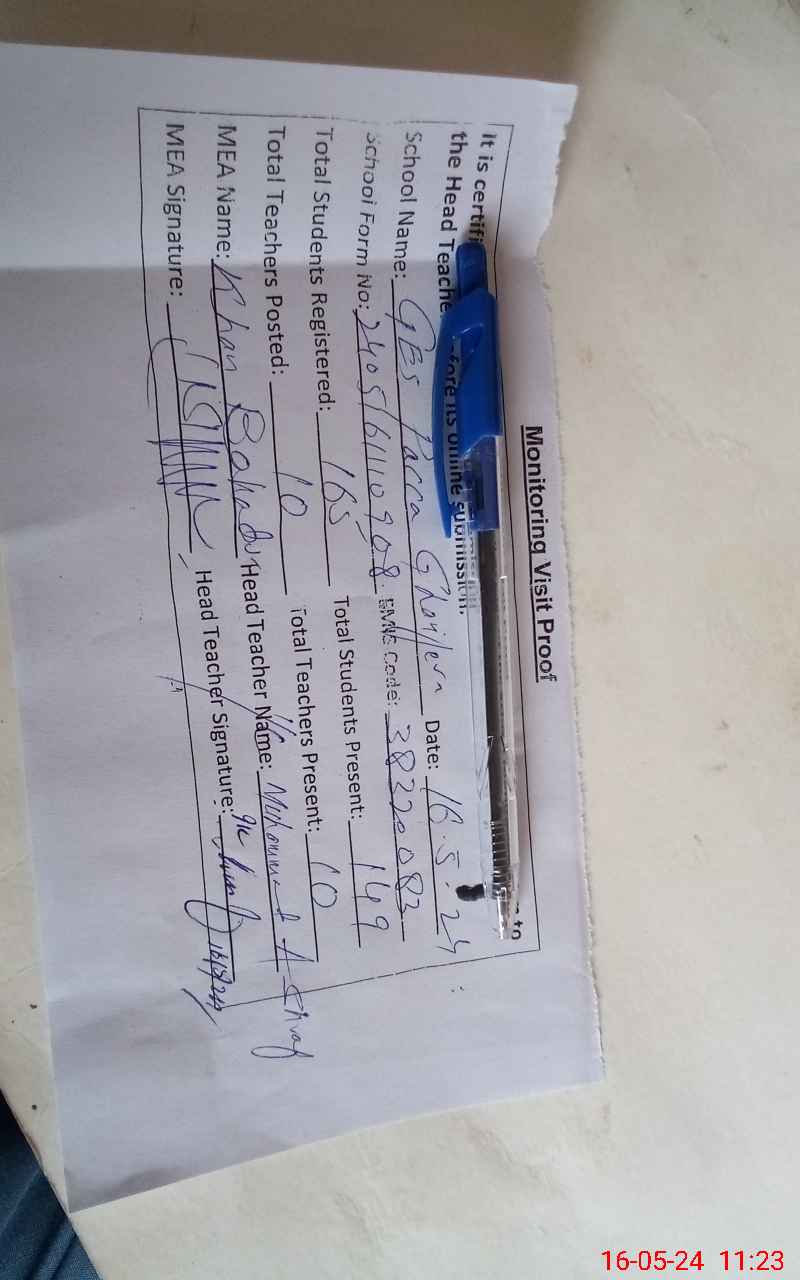 Monitoring Visit Proof
It is certifi to
the Head Teache fore its offline submission.
School Name: GES Pacca Date: 16.5.24
School Form No: 2405161110908 EMIS Code: 38320083
Total Students Registered: 165 Total Students Present: 149
Total Teachers Posted: 10 Total Teachers Present: 10
MEA Name: Khan Bahadur Head Teacher Name: Muhammad Ashraf
MEA Signature: Head Teacher Signature: 16/5/24
16-05-24 11:23